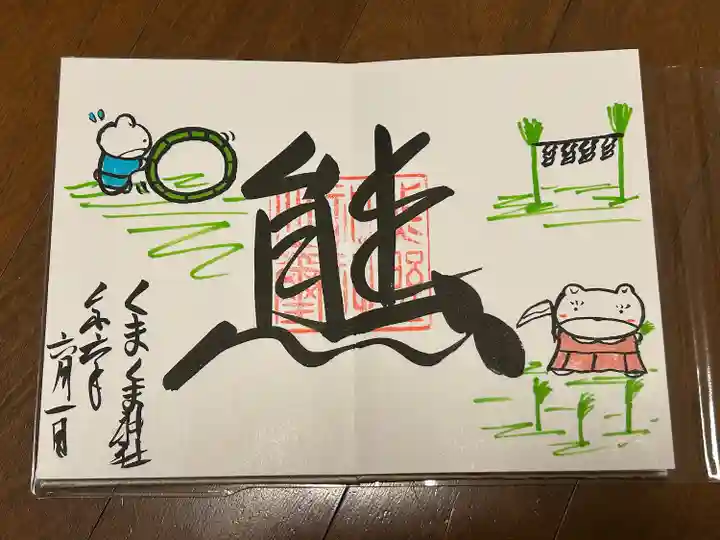 熊
くまくま神社
令和六年
六月一日